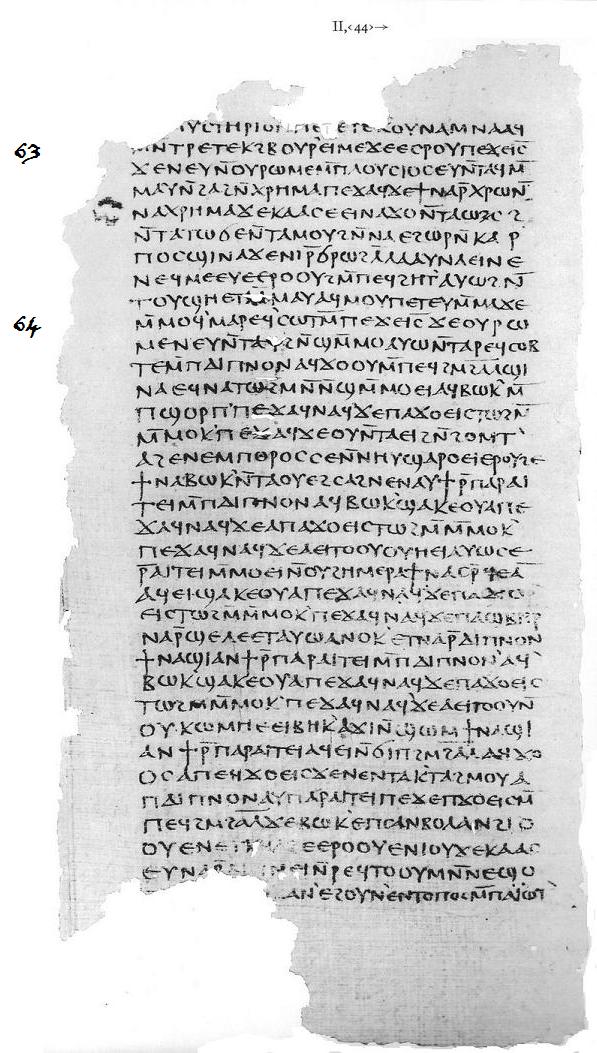 II,‹44›→
63
64
ⲙⲩⲥⲧⲏⲣⲓⲟⲛ ⲡⲉⲧⲉ ⲧⲉⲕⲟⲩⲛⲁⲙ ⲛⲁⲁϥ
ⲙⲛⲧⲣⲉⲧⲉⲕϩⲃⲟⲩⲣⲉⲓⲙⲉϫⲉⲉⲥⲣⲟⲩⲡⲉϫⲉⲓ̅ⲥ̅
ϫⲉⲛⲉⲩⲛ̅ⲟⲩⲣⲱⲙⲉⲙ̅ⲡⲗⲟⲩⲥⲓⲟⲥⲉⲩⲛ̅ⲧⲁϥⲙ̅
ⲙⲁⲩⲛ̅ϩⲁϩⲛ̅ⲭⲣⲏⲙⲁⲡⲉϫⲁϥϫⲉϯⲛⲁⲣ̅ⲭⲣⲱⲛ̅
ⲛⲁⲭⲣⲏⲙⲁϫⲉⲕⲁⲁⲥⲉⲉⲓⲛⲁϫⲟⲛ̅ⲧⲁⲱⲥϩ
ⲛ̅ⲧⲁⲧⲱϭⲉⲛ̅ⲧⲁⲙⲟⲩϩⲛ̅ⲛⲁⲉϩⲱⲣⲛ̅ⲕⲁⲣ
ⲡⲟⲥϣⲓⲛⲁϫⲉⲛⲓⲣ̅ϭⲣⲱϩⲗ̅ⲗⲁⲁⲩⲛⲁⲉⲓⲛⲉ
ⲛⲉϥⲙⲉⲉⲩⲉⲉⲣⲟⲟⲩϩⲙ̅ⲡⲉϥϩⲏⲧⲁⲩⲱϩⲛ̅
ⲧⲟⲩϣⲏⲉⲧⲙ̅ⲙⲁⲩⲁϥⲙⲟⲩⲡⲉⲧⲉⲩⲙ̅ⲙⲁϫⲉ
ⲙ̅ⲙⲟϥ'ⲙⲁⲣⲉϥ'ⲥⲱⲧⲙ̅ⲡⲉϫⲉⲓ̅ⲥ̅ϫⲉⲟⲩⲣⲱ
ⲙⲉⲛⲉⲩⲛ̅ⲧⲁϥϩⲛ̅ϣⲙ̅ⲙⲟⲁⲩⲱⲛ̅ⲧⲁⲣⲉϥⲥⲟⲃ
ⲧⲉⲙ̅ⲡⲇⲓⲡⲛⲟⲛⲁϥϫⲟⲟⲩⲙ̅ⲡⲉϥϩⲙ̅ϩⲁⲗϣⲓ
ⲛⲁⲉϥⲛⲁⲧⲱϩⲙ̅ⲛ̅ⲛ̅ϣⲙ̅ⲙⲟⲉⲓⲁϥⲃⲱⲕ'ⲙ̅
ⲡϣⲟⲣⲡ'ⲡⲉϫⲁϥⲛⲁϥϫⲉⲡⲁϫⲟⲉⲓⲥⲧⲱϩⲙ̅
ⲙ̅ⲙⲟⲕ'ⲡⲉϫⲁϥϫⲉⲟⲩⲛ̅ⲧⲁⲉⲓϩⲛ̅ϩⲟⲙⲧ'
ⲁϩⲉⲛⲉⲙⲡⲟⲣⲟⲥⲥⲉⲛ̅ⲛⲏⲩϣⲁⲣⲟⲉⲓⲉⲣⲟⲩϩⲉ
ϯⲛⲁⲃⲱⲕⲛ̅ⲧⲁⲟⲩⲉϩⲥⲁϩⲛⲉⲛⲁⲩϯⲣ̅ⲡⲁⲣⲁⲓ
ⲧⲉⲓⲙ̅ⲡⲇⲓⲡⲛⲟⲛⲁϥⲃⲱⲕ'ϣⲁⲕⲉⲟⲩⲁⲡⲉ
ϫⲁϥⲛⲁϥϫⲉⲁⲡⲁϫⲟⲉⲓⲥⲧⲱϩⲙ̅ⲙ̅ⲙⲟⲕ'
ⲡⲉϫⲁϥⲛⲁϥϫⲉⲁⲉⲓⲧⲟⲟⲩⲟⲩⲏⲉⲓⲁⲩⲱⲥⲉ
ⲣ̅ⲁⲓⲧⲉⲓⲙ̅ⲙⲟⲉⲓⲛ̅ⲟⲩϩⲏⲙⲉⲣⲁϯⲛⲁⲥⲣϥⲉⲁ
ⲁϥⲉⲓϣⲁⲕⲉⲟⲩⲁⲡⲉϫⲁϥⲛⲁϥϫⲉⲡⲁϫⲟ
ⲉⲓⲥⲧⲱϩⲙ̅ⲙ̅ⲙⲟⲕ'ⲡⲉϫⲁϥⲛⲁϥϫⲉⲡⲁϣⲃⲏⲣ
ⲛⲁⲣ̅ϣⲉⲗⲉⲉⲧⲁⲩⲱⲁⲛⲟⲕ'ⲉⲧⲛⲁⲣ̅ⲇⲓⲡⲛⲟⲛ
ϯⲛⲁϣⲓⲁⲛϯⲣ̅ⲡⲁⲣⲁⲓⲧⲉⲓⲙ̅ⲡⲇⲓⲡⲛⲟⲛ'ⲁϥ'
ⲃⲱⲕ'ϣⲁⲕⲉⲟⲩⲁⲡⲉϫⲁϥⲛⲁϥϫⲉⲡⲁϫⲟⲉⲓⲥ
ⲧⲱϩⲙ̅ⲙ̅ⲙⲟⲕ'ⲡⲉϫⲁϥⲛⲁϥϫⲉⲁⲉⲓⲧⲟⲟⲩⲛ̅
ⲟⲩⲕⲱⲙⲏⲉⲉⲓⲃⲏⲕ'ⲁϫⲓⲛ̅ϣⲱⲙϯⲛⲁϣⲓ
ⲁⲛϯⲣ̅ⲡⲁⲣⲁⲓⲧⲉⲓⲁϥⲉⲓⲛ̅ϭⲓⲡϩⲙ̅ϩⲁⲗⲁϥϫⲟ
ⲟⲥⲁⲡⲉϥϫⲟⲉⲓⲥϫⲉⲛⲉⲛⲧⲁⲕⲧⲁϩⲙⲟⲩⲁ
ⲡⲇⲓⲡⲛⲟⲛⲁⲩⲡⲁⲣⲁⲓⲧⲉⲓⲡⲉϫⲉⲡϫⲟⲉⲓⲥⲙ̅
ⲡⲉϥϩⲙ̅ϩⲁⲗϫⲉⲃⲱⲕⲉⲡⲥⲁⲛⲃⲟⲗⲁⲛϩⲓⲟ
ⲟⲩⲉⲛⲉⲧⲕⲛⲁϩⲉⲉⲣⲟⲟⲩⲉⲛⲓⲟⲩϫⲉⲕⲁⲁⲥ
ⲉⲩⲛⲁⲣ̅ⲇⲓⲡⲛⲉⲓⲛ̅ⲣⲉϥⲧⲟⲟⲩⲙⲛ̅ⲛⲉϣⲟ
ⲁⲛ'ⲉϩⲟⲩⲛ'ⲉⲛⲧⲟⲡⲟⲥⲙ̅ⲡⲁⲓⲱⲧ'